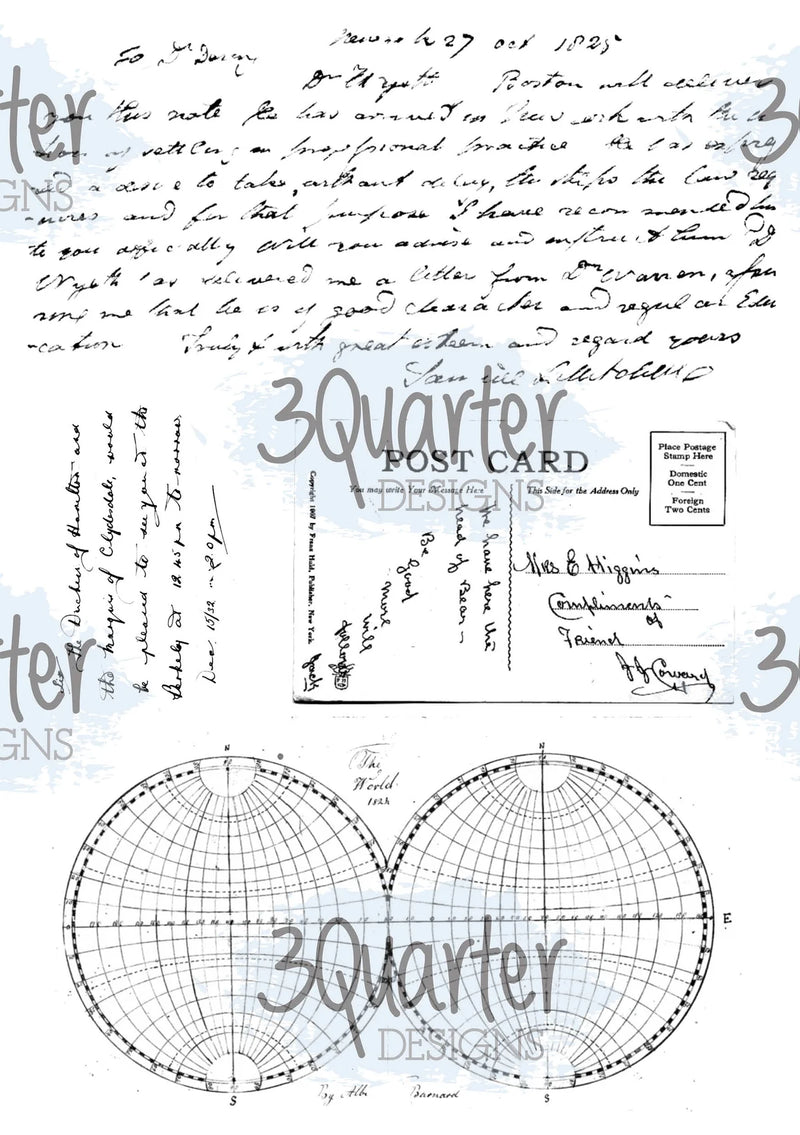 27 Oct 1825
To Dr
Dr Wyeth Boston will deliver
you this note He has arrived in New York with the
of settling in professional practice He has
a desire to take, without delay, the steps the law req
-uires and for that purpose I have recommended him
to you specially Will you advise and instruct him Dr
Wyeth has delivered me a letter from Dr Warren, assu
ring me that he is of good character and regular Edu
-cation Truly & with great esteem and regard yours
The Duchess of Hamilton and
the Marquis of Clydesdale, would
be pleased to see you at the
Berkeley at 12.45 pm to-morrow.
Dec 15/32
3Quarter
DESIGNS
POST CARD
Place Postage
Stamp Here
Domestic
One Cent
Foreign
Two Cents
You may write Your Message Here
This Side for the Address Only
Copyright 1907 by Franz Huld, Publisher, New York
We have here the
head of Bear -
Be
good
more
will
follow
Jack
Mrs E Higgins
Compliments
of
Friend
J J Coward
N
The
World
1824
E
3Quarter
DESIGNS
S
S
By
Barnard